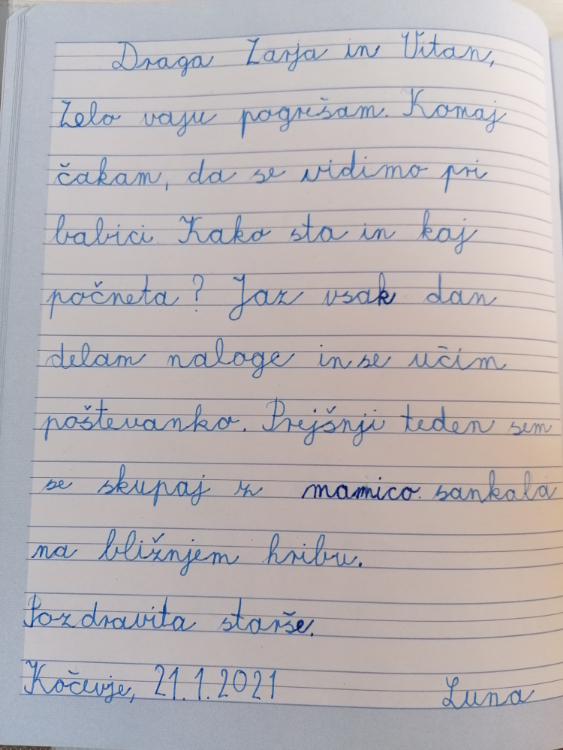 Draga Zarja in Vitan,
Zelo vaju pogrešam. Komaj
čakam, da se vidimo pri
babici. Kako sta in kaj
počneta? Jaz vsak dan
delam naloge in se učim
poštevanko. Prejšnji teden sem
se skupaj z mamico sankala
na bližnjem hribu.
Pozdravita starše.
Kočevje, 21.1.2021 Luna